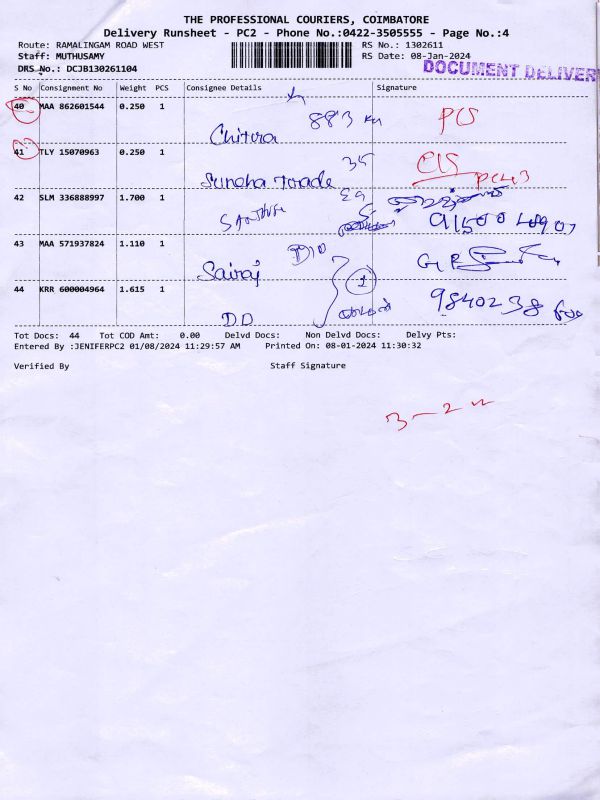 THE PROFESSIONAL COURIERS, COIMBATORE
Delivery Runsheet - PC2 - Phone No.:0422-3505555 - Page No.:4
Route: RAMALINGAM ROAD WEST RS No.: 1302611
Staff: MUTHUSAMY RS Date: 08-Jan-2024
DOCUMENT DELIVER
DRS No.: DCJB130261104
S No Consignment No Weight PCS Consignee Details Signature
40 MAA 862601544 0.250 1 883
Chitra
41 TLY 15070963 0.250 1 35
42 SLM 336888997 1.700 1
43 MAA 571937824 1.110 1 D10
Sairaj
44 KRR 600004964 1.615 1 1 9840238
DD
Tot Docs: 44 Tot COD Amt: 0.00 Delvd Docs: Non Delvd Docs: Delvy Pts:
Entered By :JENIFERPC2 01/08/2024 11:29:57 AM Printed On: 08-01-2024 11:30:32
Verified By Staff Signature